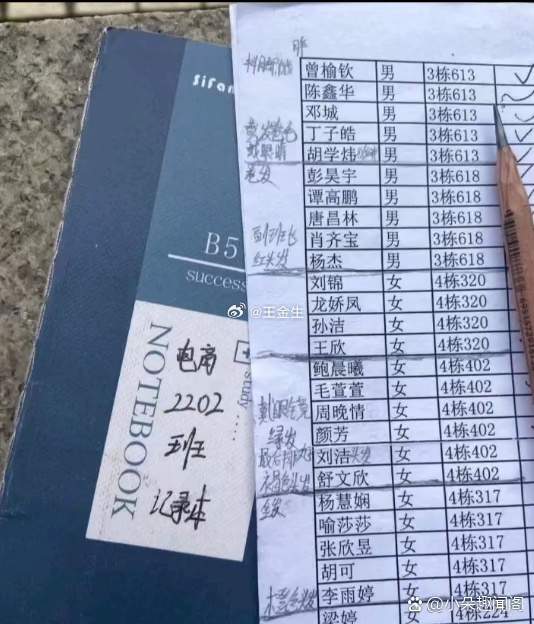 sifan
B5
success
NOTEBOOK
study
电商
2202
班
记录本
班
曾榆钦 男 3栋613
陈鑫华 男 3栋613
邓城 男 3栋613
丁子皓 男 3栋613
戴眼睛 胡学炜 男 3栋613
彭昊宇 男 3栋618
谭高鹏 男 3栋618
唐昌林 男 3栋618
副班长 肖齐宝 男 3栋618
红头发 杨杰 男 3栋618
刘锦 女 4栋320
龙娇凤 女 4栋320
孙洁 女 4栋320
王欣 女 4栋320
鲍晨曦 女 4栋402
毛萱萱 女 4栋402
周晚情 女 4栋402
绿发 颜芳 女 4栋402
刘洁 女 4栋402
舒文欣 女 4栋402
杨慧娴 女 4栋317
喻莎莎 女 4栋317
张欣昱 女 4栋317
胡可 女 4栋317
李雨婷 女 4栋317
梁婷 女 4栋224
@王金生
头条 @小朵趣闻阁